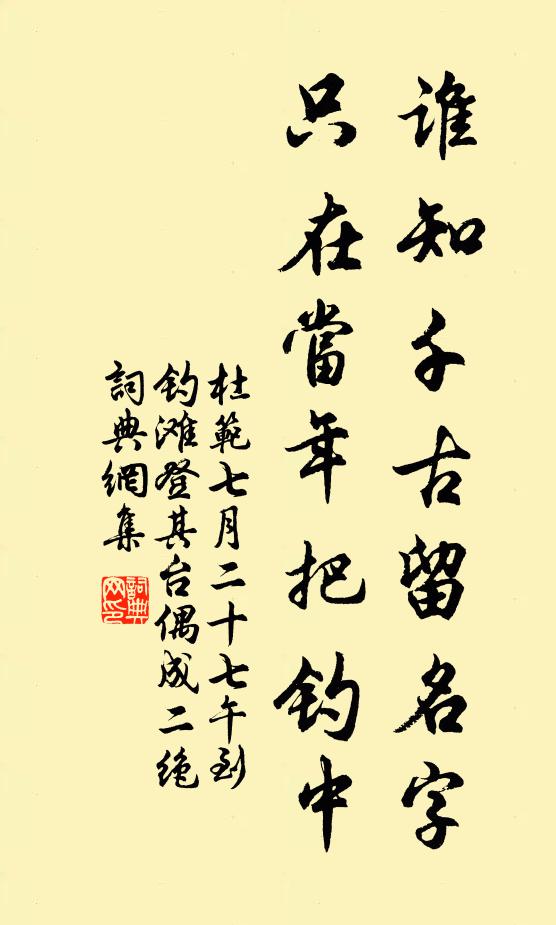 谁知千古留名字
只在當年把钓中
杜範七月二十七午到
钓滩登其台偶成二绝
詞典網集
詞典
网印